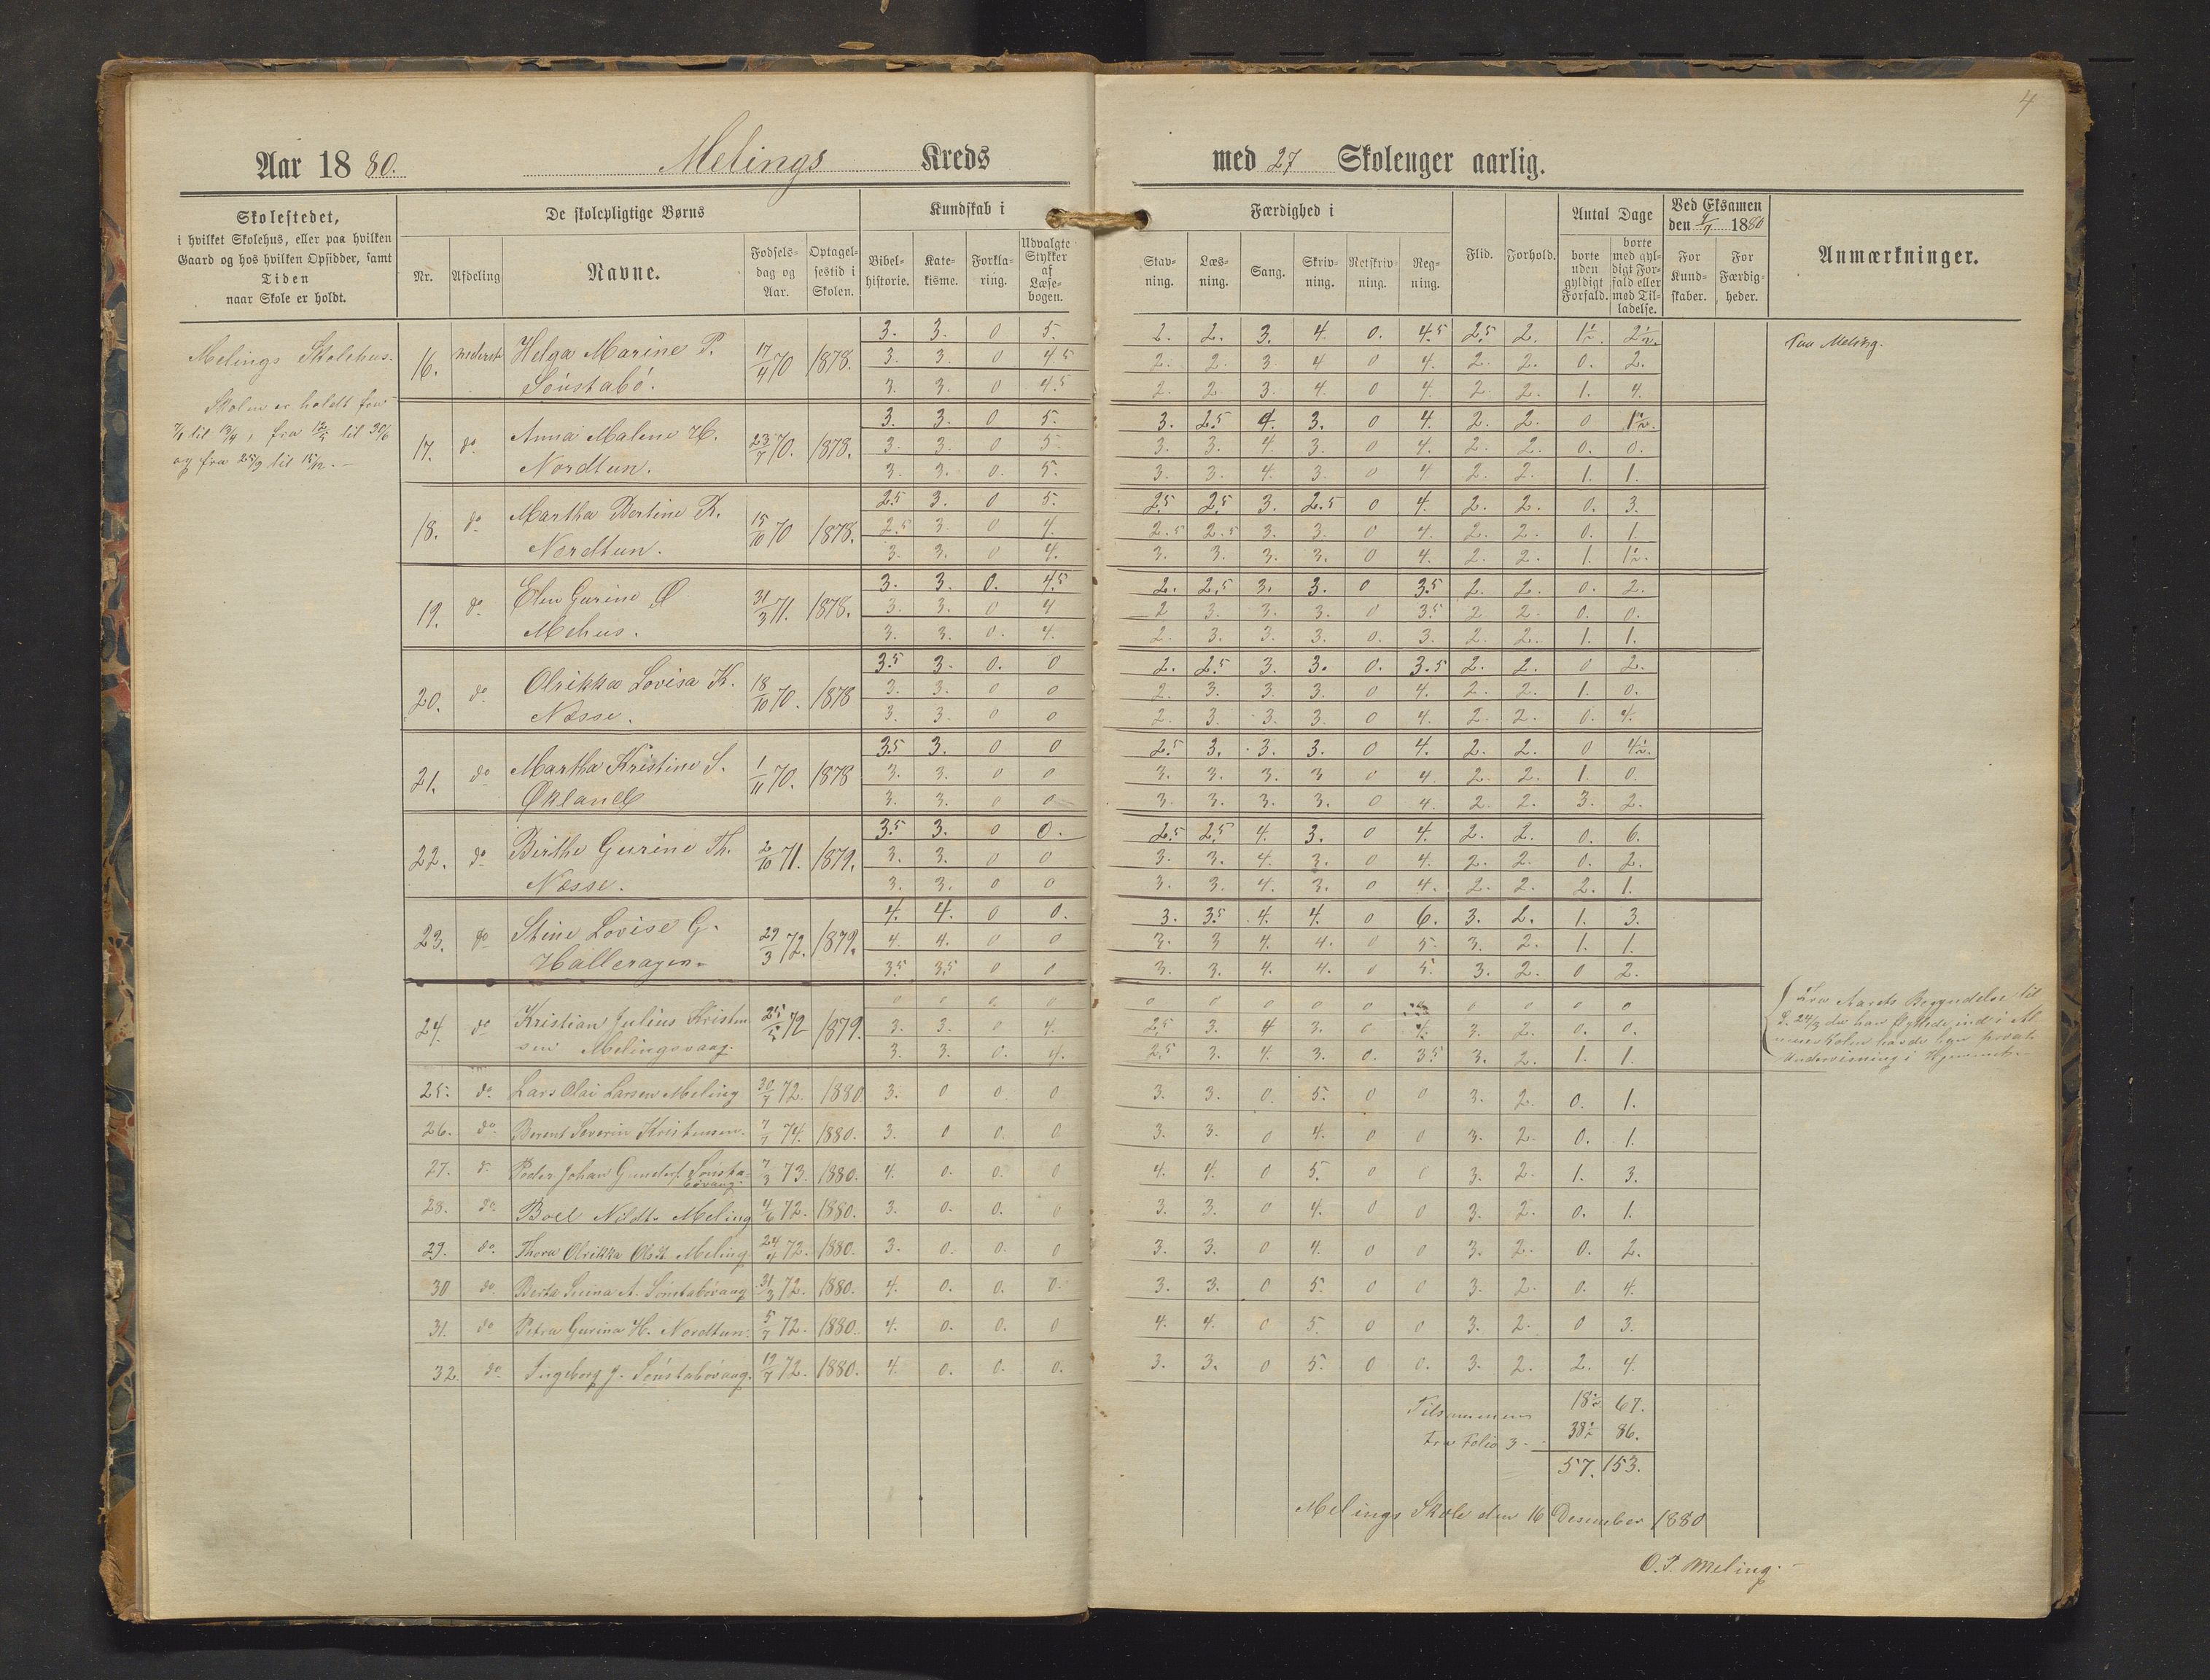 4
Aar 18 80. Melings Kreds med 27 Skolenger aarlig.
Skolestedet,
i hvilket Skolehus, eller paa hvilken
Gaard og hos hvilken Opsidder, samt
Tiden
naar Skole er holdt.
De skolepligtige Børns
Nr. Afdeling Navne. Fødselsdag og Aar. Optagelsestid i Skolen.
Kundskab i
Bibelhistorie. Katekisme. Forklaring. Udvalgte Stykker af Læsebogen.
Færdighed i
Stavning. Læsning. Sang. Skrivning. Retskrivning. Regning.
Flid. Forhold.
Antal Dage
borte uden gyldigt Forfald. borte med gyldigt Forfald eller med Tilladelse.
Ved Eksamen
den 9/7 1880
For Kundskaber. For Færdigheder.
Anmærkninger.
Melings Skolehus.
Skolen er holdt fra
7/1 til 13/4, fra 12/5 til 30/6
og fra 25/9 til 15/12. –
16. nederste Helga Marine P. Sönstabö. 17/4 70 1878.
3. 3. 0 5. 2. 2. 3. 4. 0. 4.5 2.5 2. 1½. 2½. Paa Meling.
3. 3. 0 4.5 2. 2. 3 4 0 4. 2. 2. 0. 2.
3. 3. 0 4.5 2. 2 3. 4. 0 4. 2. 2. 1. 4.
17. do Anna Malene H. Nordtun. 23/7 70. 1878.
3. 3. 0 5. 3. 2.5 4. 3. 0 4. 2. 2. 0 1½.
3. 3. 0 5. 3. 3. 4. 3. 0 4. 2. 2. 0. 0.
3. 3. 0. 5. 3. 3. 4. 3. 0 4 2. 2. 1. 1.
18. do Martha Bertine R. Nordtun. 15/10 70 1878.
2.5 3. 0 5. 2.5 2.5 3. 2.5 0 4. 2. 2. 0. 3.
2.5 3. 0 4. 2.5 2.5 3. 3. 0 4. 2. 2. 0. 1.
3. 3. 0 4. 3. 3. 3. 3. 0 4. 2. 2. 1. 1½.
19. do Elen Gurine Ø Mehus. 31/3 71. 1878.
3. 3. 0. 4.5 2. 2.5 3. 3. 0 3.5 2. 2. 0. 2.
3. 3. 0 4 2 3. 3. 3. 0 3.5 2. 2. 0. 0.
3. 3. 0. 4. 2. 3. 3. 3. 0. 3. 2. 2. 1. 1.
20. do Olrikka Lovisa K. Næsse. 18/10 70. 1878
3.5 3. 0. 0 2. 2.5 3. 3. 0. 3.5 2. 2. 0 2.
3. 3. 0 0 2. 3. 3. 3. 0 4. 2. 2. 1. 0.
3. 3. 0 0 2. 3. 3. 3. 0 4. 2. 2. 0. 4.
21. do Martha Kristine S. Økland 1/11 70. 1878
3.5 3. 0 0 2.5 3. 3. 3. 0 4. 2. 2. 0 4½.
3. 3. 0 0 3. 3. 3. 3 0 4. 2. 2. 1. 0.
3. 3. 0 0 3. 3. 3. 3. 0 4. 2. 2. 3. 2.
22. do Birthe Gurine Th. Næsse. 2/10 71. 1879.
3.5 3. 0 0. 2.5 2.5 4. 3. 0 4. 2. 2. 0. 6.
3. 3. 0 0 3. 3. 4. 3. 0 4. 2. 2. 0. 2.
3. 3. 0 0 3. 3. 4. 3. 0 4. 2. 2. 2. 1.
23. do Stine Lovise G. Halleragen. 29/3 72. 1879.
4. 4. 0 0. 3. 3.5 4. 4. 0 6. 3. 2. 1. 3.
4. 4. 0 0 3. 3 4. 4. 0 5. 3. 2. 1. 1.
3.5 3.5 0 0 3. 3. 4. 4. 0 5. 3. 2. 0 2.
24. do Kristian Julius Kristensen Melingsvaag. 72 1879.
0 0 0. 0 0 0 0 0 0 0 0 0 0
3. 3. 0 4. 2.5 3. 4 3. 0 4. 3. 2. 0. 0.
3. 3. 0. 4. 2.5 3. 4. 3. 0. 3.5 3. 2. 1. 1.
Fra Aarets Begyndelse til
d. 24/3 da han flyttede ind i
havde han privat
Undervisning i Hjemmet.
25. do. Lars Olai Larsen Meling 30/7 72. 1880 3. 0 0. 0 3. 3. 0. 5. 0 0 3. 2. 0. 1.
26. do. Berent Severin Kristensen. 7/7 74. 1880. 3. 0 0. 0 3. 3. 0 4. 0 0 3. 2. 0. 1.
27. d. Peder Johan Gunders. Sönstabövaag. 7/3 73. 1880. 4. 0. 0. 0 4. 4. 0 5. 0 0 3. 2. 1. 3.
28. do. Boel Nilsdtr Meling 4/6 72. 1880. 3. 0. 0. 0 3. 3. 0 4. 0 0 3. 2. 0. 1.
29. do. Thora Olrikka Olsdt. Meling. 24/4 72. 1880. 3. 0. 0. 0 3. 3. 0 4. 0 0 3. 2. 0. 2.
30 do. Berta Serina A. Sönstabövaag 31/3 72. 1880. 4. 0. 0. 0. 3. 3. 0 5. 0 0 3. 2. 0. 4.
31. do Petra Gurina H. Nordtun. 5/7 72. 1880. 4. 0. 0. 0 4. 4. 0 5. 0 0 3. 2. 0 3.
32. do. Ingeborg J. Sönstabövaag. 19/7 72. 1880. 4. 0. 0. 0. 3. 3. 0 5. 0 0. 3. 2. 2. 4.
Tilsammen 18½ 67.
Fra Folio 3 – 38½ 86.
57. 153.
Melings Skole den 16 Desember 1880
O. P. Meling. –